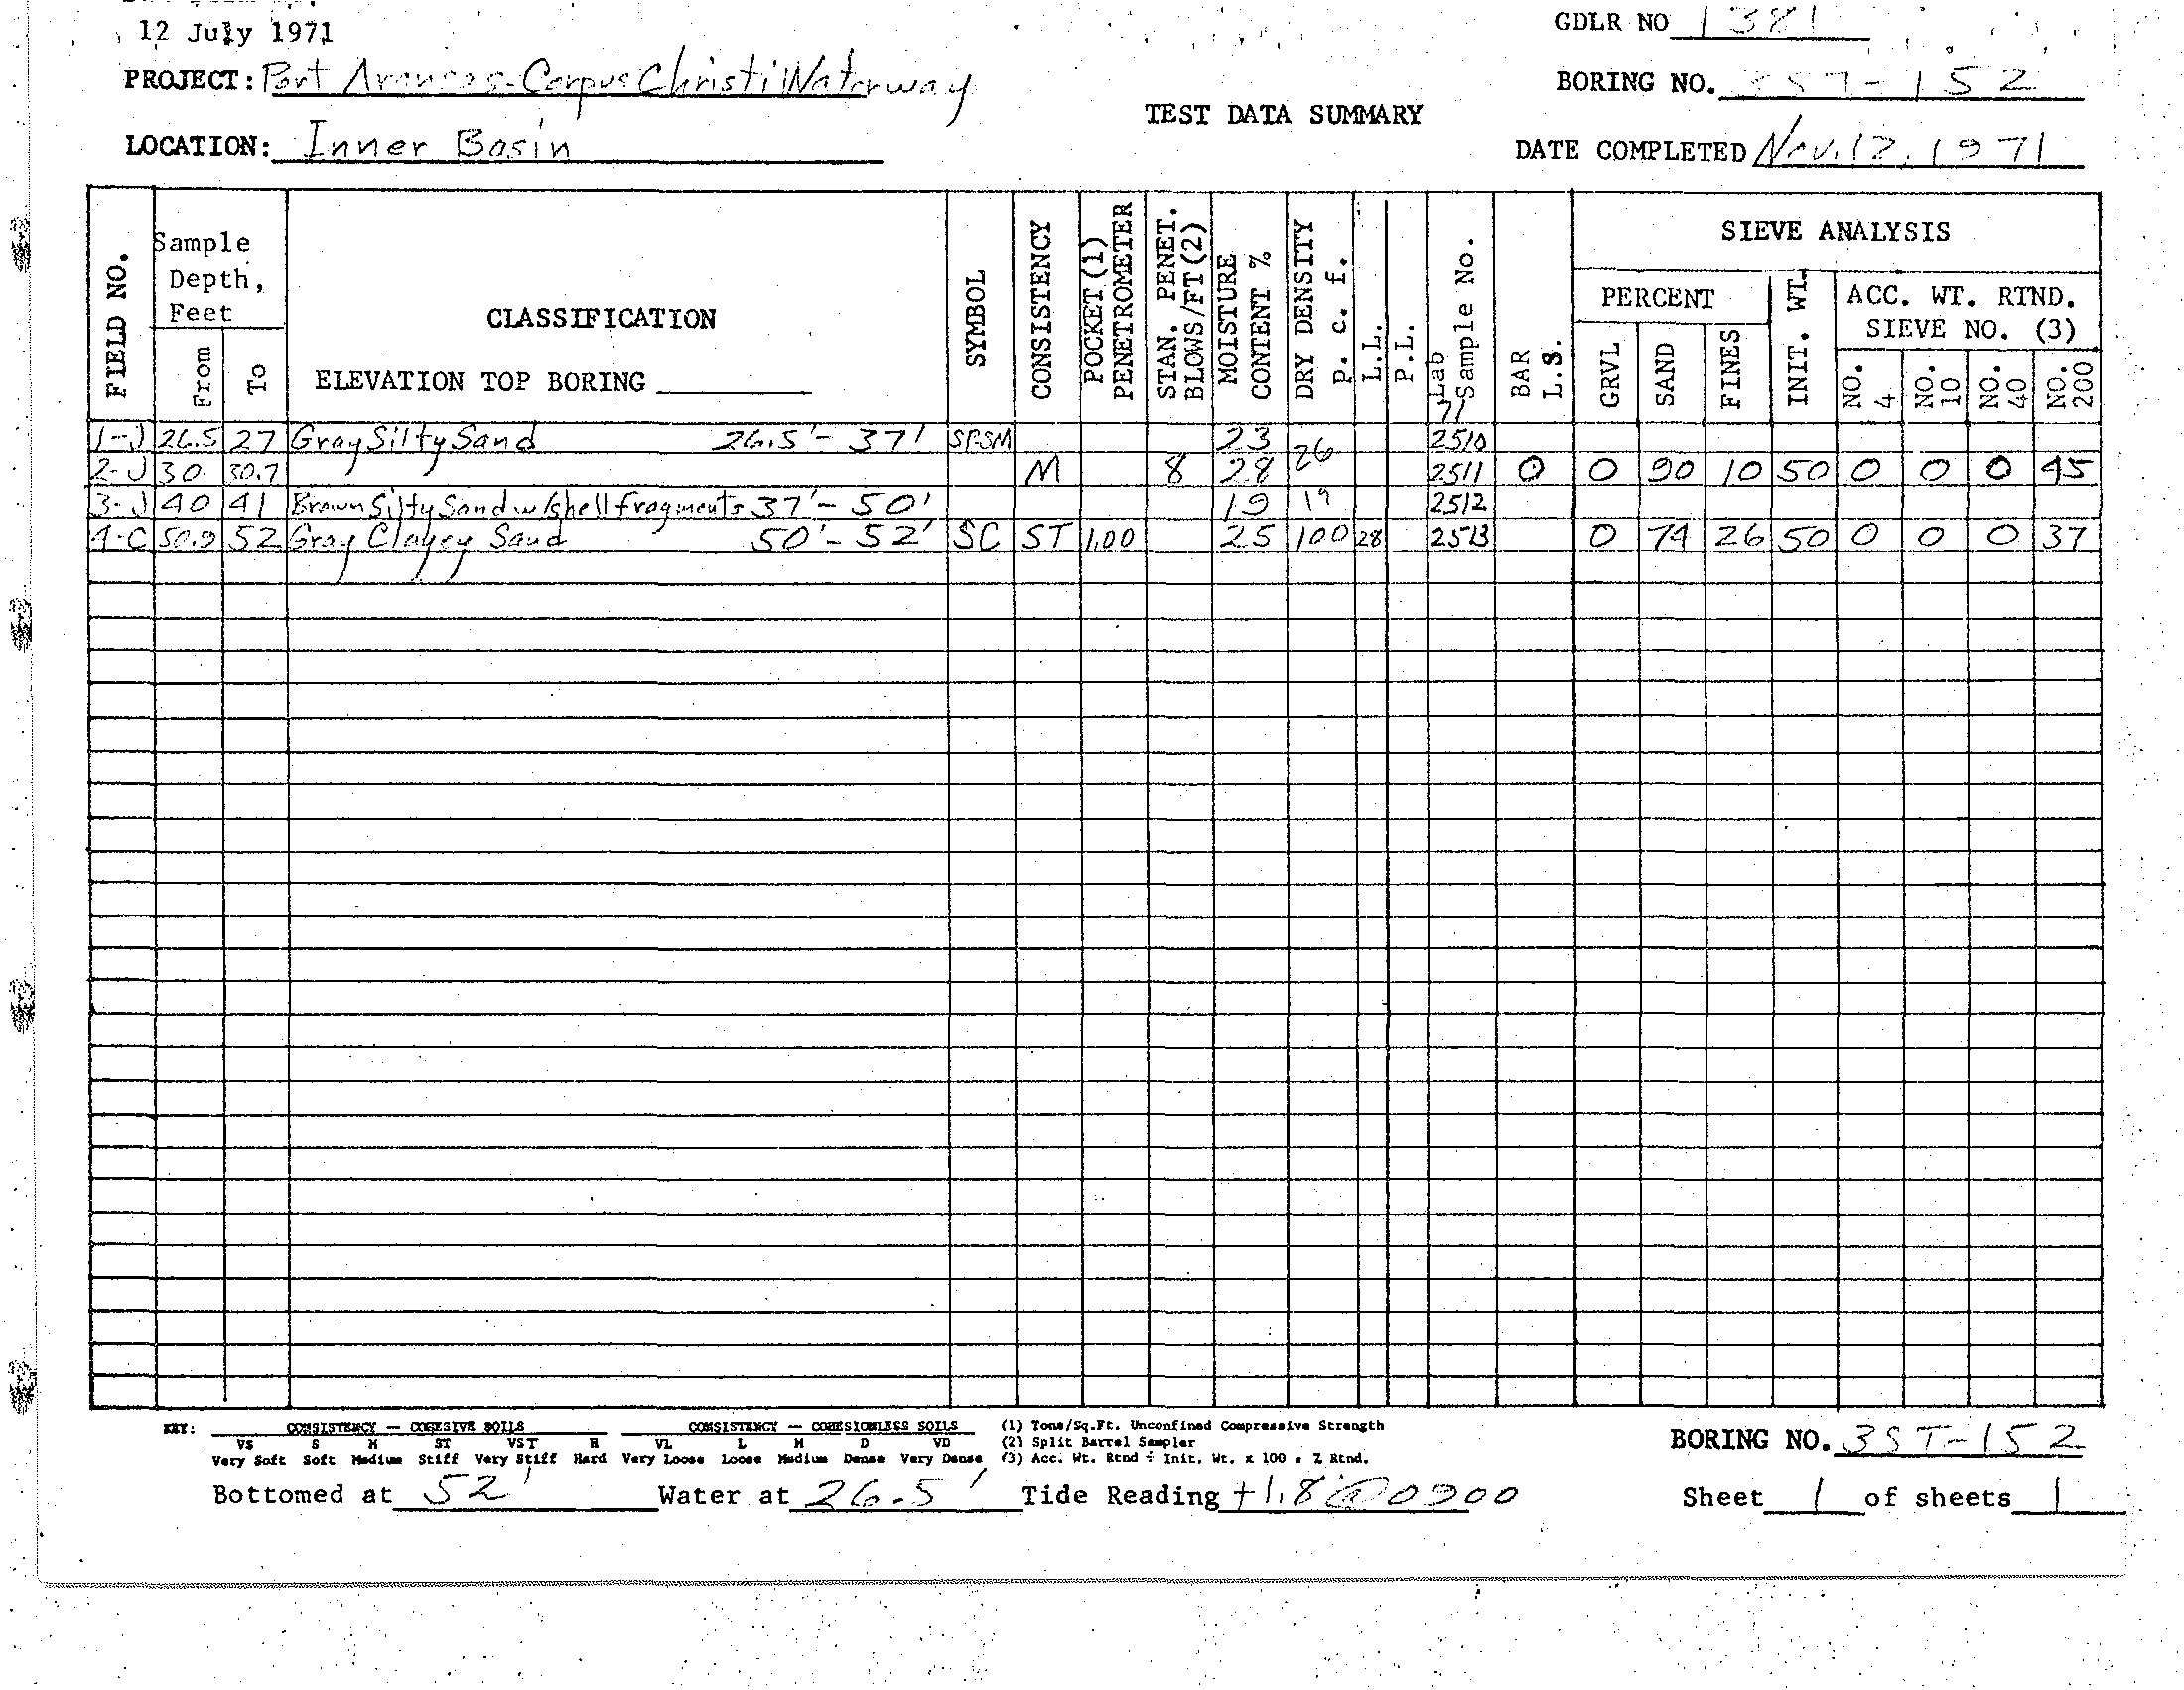 12 July 1971
GDLR NO 1381
PROJECT: Port Aransas-Corpus Christi Waterway
BORING NO. 3ST-152
TEST DATA SUMMARY
LOCATION: Inner Basin
DATE COMPLETED Nov. 12, 1971
FIELD NO.
Sample Depth, Feet
From
To
CLASSIFICATION
ELEVATION TOP BORING
SYMBOL
CONSISTENCY
POCKET (1) PENETROMETER
STAN. PENET. BLOWS/FT (2)
MOISTURE CONTENT %
DRY DENSITY p. c. f.
L.L.
P.L.
Lab Sample No.
BAR L.S.
SIEVE ANALYSIS
PERCENT
GRVL
SAND
FINES
INIT. WT.
ACC. WT. RTND. SIEVE NO. (3)
NO. 4
NO. 10
NO. 40
NO. 200
71
1-J 26.5 27 Gray Silty Sand 26.5'- 37' SP-SM 23 2510
2-J 30. 30.7 M 8 28 26 2511 0 0 90 10 50 0 0 0 45
3-J 40 41 Brown Silty Sand w/shell fragments 37'- 50' 19 19 2512
4-C 50.9 52 Gray Clayey Sand 50'- 52' SC ST 1.00 25 100 28 2513 0 74 26 50 0 0 0 37
KEY: CONSISTENCY — COHESIVE SOILS CONSISTENCY — COHESIONLESS SOILS (1) Tons/Sq.Ft. Unconfined Compressive Strength
VS S M ST VST H VL L M D VD (2) Split Barrel Sampler
Very Soft Soft Medium Stiff Very Stiff Hard Very Loose Loose Medium Dense Very Dense (3) Acc. Wt. Rtnd ÷ Init. Wt. x 100 = % Rtnd.
BORING NO. 3ST-152
Bottomed at 52' Water at 26.5' Tide Reading +1.8 @ 0900 Sheet 1 of sheets 1